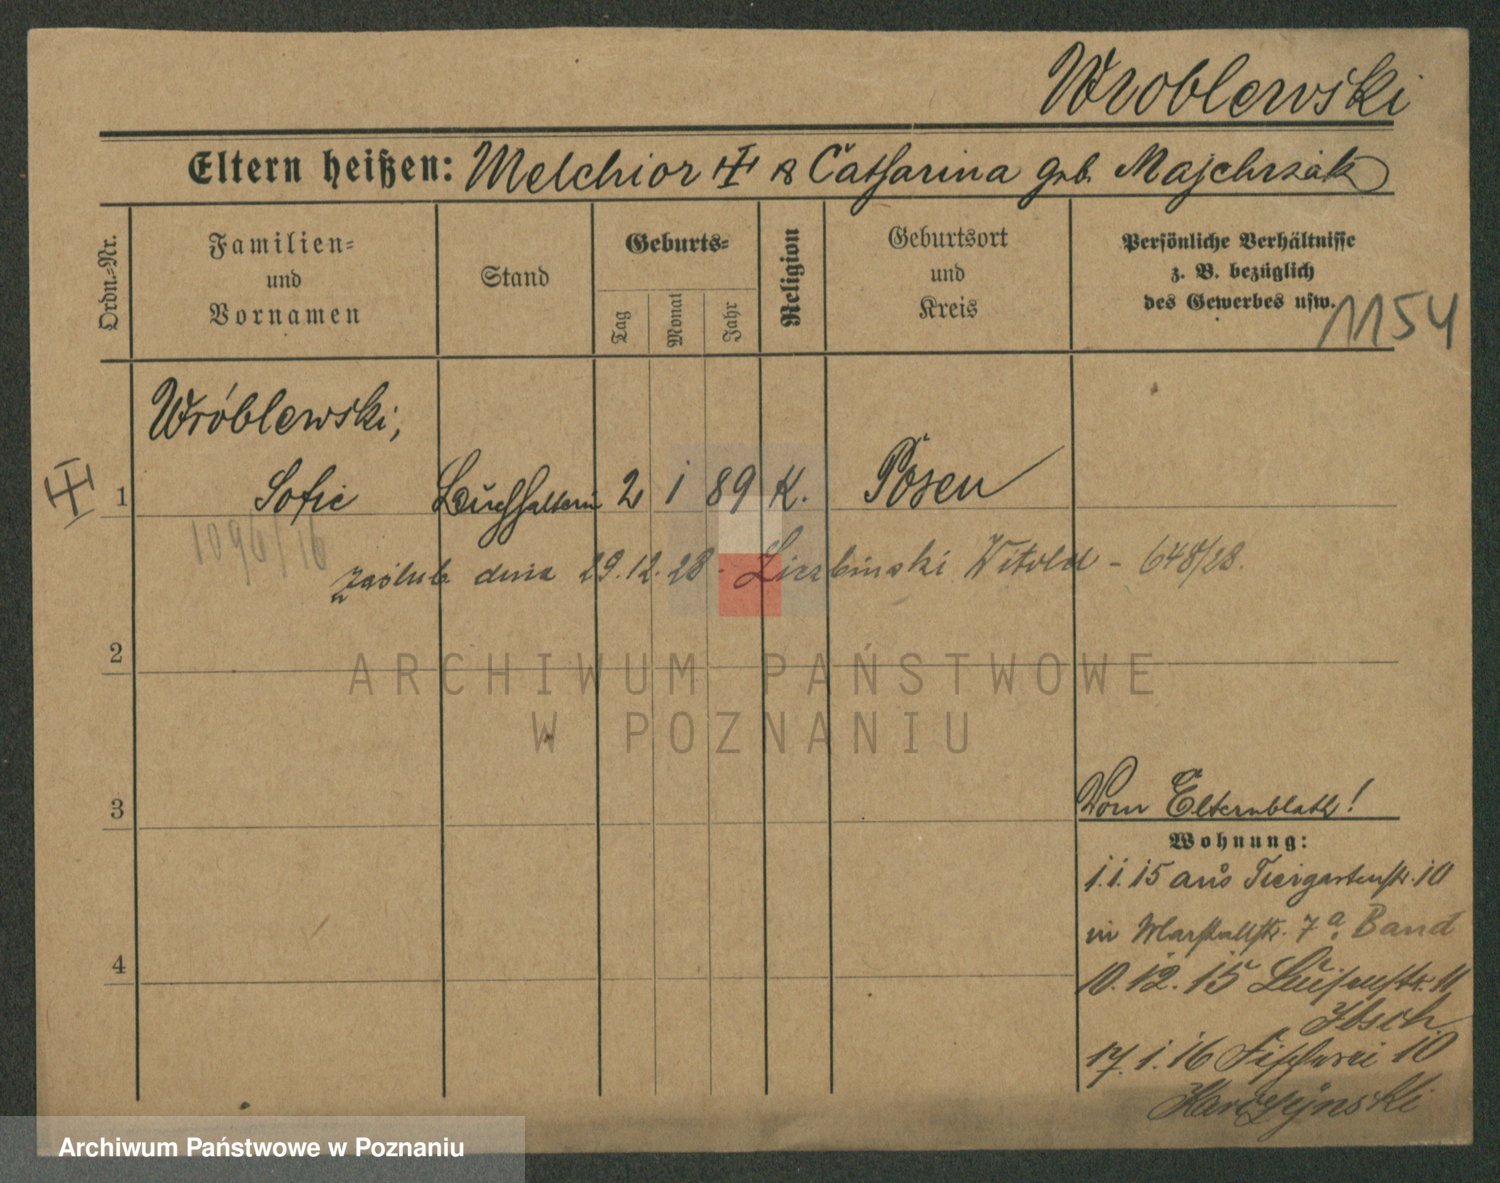 Wroblewski
Eltern heißen: Melchior & Catharina geb. Majchrzak
Ordn.-Nr.
Familien-
und
Vornamen
Stand
Geburts-
Tag
Monat
Jahr
Religion
Geburtsort
und
Kreis
Persönliche Verhältnisse
z. B. bezüglich
des Gewerbes usw.
1154
Wróblewski,
1 Sofie Buchhalterin 2 1 89 K. Posen
1094/16
zaślub. dnia 29.12.28 - Liczbinski Witold - 648/28.
2
ARCHIWUM PAŃSTWOWE
W POZNANIU
3
Vom Elternblatt!
Wohnung:
1.1.15 aus Tiergartenstr. 10
in Marstallstr. 7a. Band
4
10.12.15 Luisenstr. 11
17.1.16 Fischerei 10
Archiwum Państwowe w Poznaniu